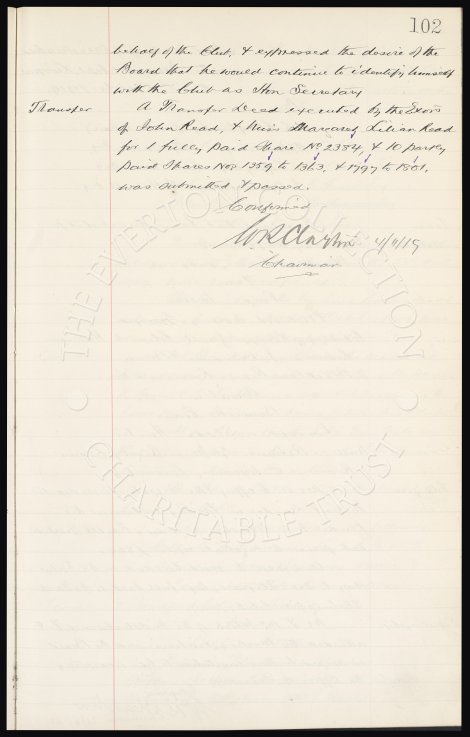 102
behalf of the Club, & expressed the desire of the
Board that he would continue to identify himself
with the Club as Hon Secretary
Transfer A Transfer Deed executed by the Exors
of John Read, & Miss Margaret Lilian Read
for 1 fully paid Share No 2384, & 10 partly
paid Shares Nos 1359 to 1363, & 1797 to 1801,
was submitted & passed.
Confirmed
W R Clayton 4/11/19
Chairman
THE EVERTON COLLECTION
CHARITABLE TRUST